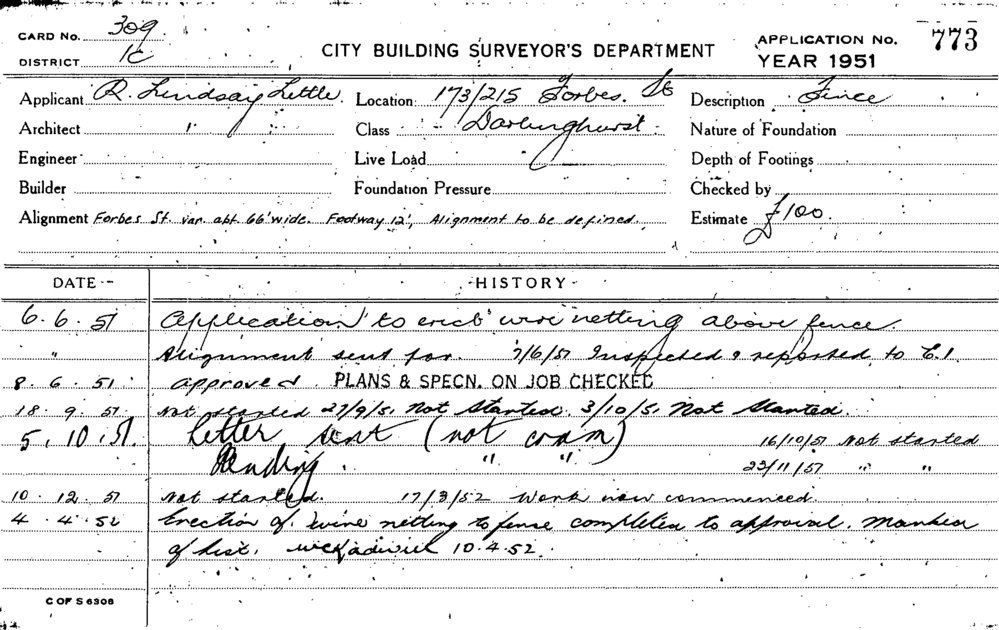 CARD No. 309
DISTRICT 1C
CITY BUILDING SURVEYOR'S DEPARTMENT
APPLICATION No. 773
YEAR 1951
Applicant R. Lindsay Little. Location 173/215 Forbes. St Description Fence
Architect " Class Darlinghurst. Nature of Foundation
Engineer Live Load Depth of Footings
Builder Foundation Pressure Checked by
Alignment Forbes St. var. abt. 66' wide. Footway 12', Alignment to be defined. Estimate £100.
DATE HISTORY
6. 6. 51 Application to erect wire netting above fence.
" Alignment sent for. 7/6/51 Inspected & reported to C.I.
8. 6. 51 approved PLANS & SPECN. ON JOB CHECKED
18. 9. 51 Not started 27/9/51 Not Started. 3/10/51 Not Started.
5. 10. 51. Letter sent (not comm) 16/10/51 Not started
Pending. " " 23/11/51 " "
10. 12. 51 Not started. 17/3/52 Work now commenced.
4. 4. 52 Erection of wire netting to fence completed to approval.
of list. 10.4.52.
C OF S 6306